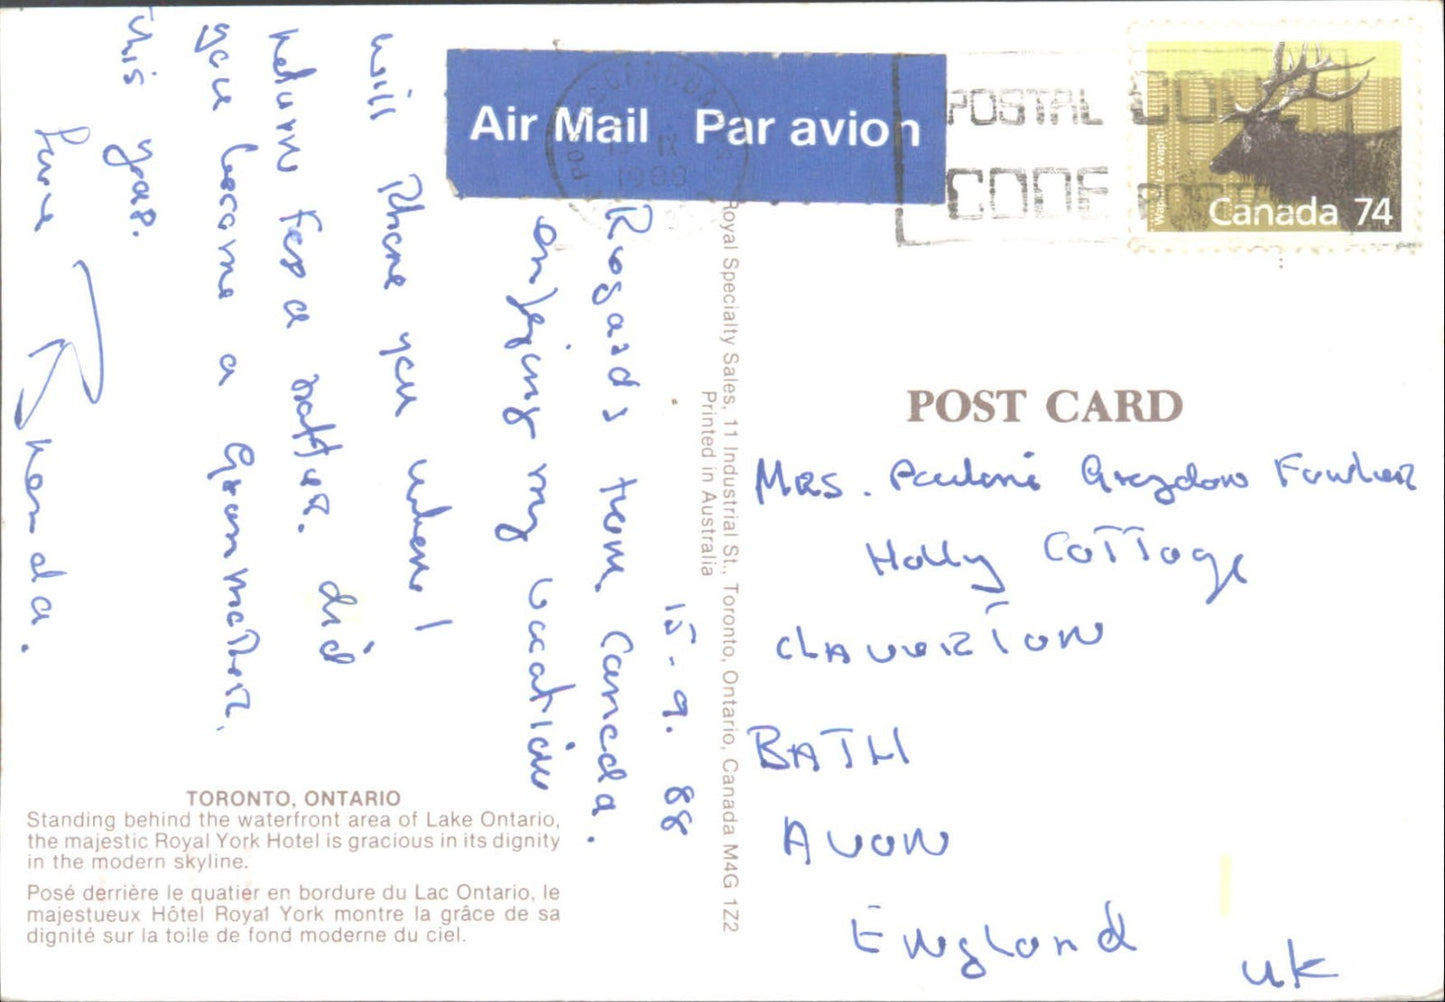 Air Mail Par avion
POSTAL CODE
CODE
CANADA
IX
1988
Wapiti
Canada 74
POST CARD
15-9.88
Regards from Canada.
enjoying my vacation
will Phone you when I
return for a natter. did
you become a Grandmother.
this year.
Love
Mrs. Pauline Graydon Fowler
Holly Cottage
CLAVERTON
BATH
AVON
England
UK
Royal Specialty Sales, 11 Industrial St., Toronto, Ontario, Canada M4G 1Z2
Printed in Australia
TORONTO, ONTARIO
Standing behind the waterfront area of Lake Ontario,
the majestic Royal York Hotel is gracious in its dignity
in the modern skyline.
Posé derrière le quatier en bordure du Lac Ontario, le
majestueux Hôtel Royal York montre la grâce de sa
dignité sur la toile de fond moderne du ciel.